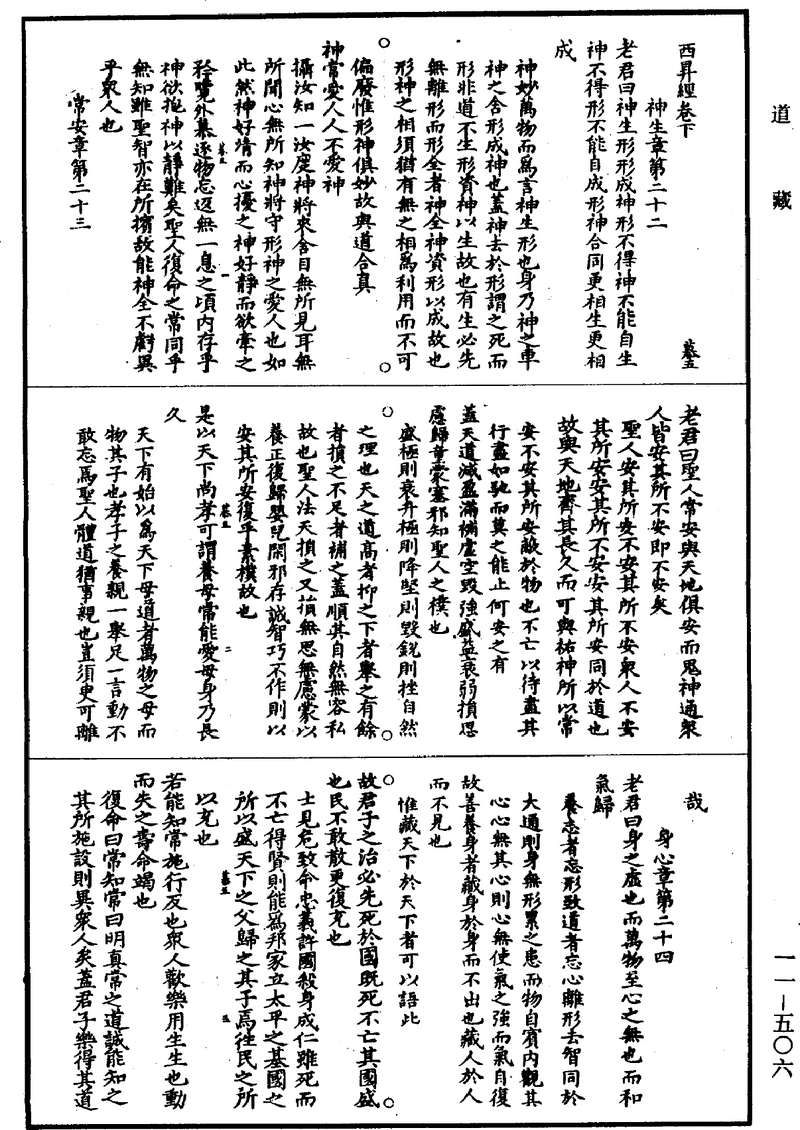 道藏
一一—五〇六
西昇經卷下
慕五
神生章第二十二
老君曰神生形形成神形不得神不能自生
神不得形不能自成形神合同更相生更相
成
神妙萬物而爲言神生形也身乃神之車
神之舍形成神也蓋神去於形謂之死而
形非道不生形資神以生故也有生必先
無離形而形全者神全神資形以成故也
形神之相須猶有無之相爲利用而不可
偏廢惟形神俱妙故與道合真
神常愛人人不愛神
攝汝知一汝度神將來舍目無所見耳無
所聞心無所知神將守形神之愛人也如
此然神好清而心擾之神好靜而欲牽之
矜覽外慕逐物忘返無一息之頃内存乎
神欲抱神以靜難矣聖人復命之常同乎
無知雖聖智亦在所擯故能神全不虧異
乎衆人也
常安章第二十三
老君曰聖人常安與天地俱安而鬼神通衆
人皆安其所不安即不安矣
聖人安其所安不安其所不安衆人不安
其所安安其所不安安其所安同於道也
故與天地齊其長久而可與祐神所以常
安不安其所安敵於物也不亡以待盡其
行盡如馳而莫之能止何安之有
蓋天道減盈滿補虛空毀強盛益衰弱損思
慮歸童蒙塞邪知聖人之樸也
盛極則衰升極則降堅則毀銳則挫自然
之理也天之道高者抑之下者舉之有餘
者損之不足者補之蓋順其自然無容私
故也聖人法天損之又損無思無慮蒙以
養正復歸嬰兒閑邪存誠智巧不作則以
安其所安復乎素樸故也
是以天下尚孝可謂養母常能愛母身乃長
久
天下有始以爲天下母道者萬物之母而
物其子也孝子之養親一舉足一言動不
敢忘焉聖人體道猶事親也豈須臾可離
哉
身心章第二十四
老君曰身之虛也而萬物至心之無也而和
氣歸
養志者忘形致道者忘心離形去智同於
大通則身無形累之患而物自賓内觀其
心心無其心則心無使氣之強而氣自復
故善養身者藏身於身而不出也藏人於人
而不見也
惟藏天下於天下者可以語此
故君子之治必先死於國既死不亡其國盛
也民不敢散更復充也
士見危致命忠義許國殺身成仁雖死而
不亡得賢則能爲邦家立太平之基國之
所以盛天下之父歸之其子焉往民之所
以充也
若能知常施行反也衆人歡樂用生生也動
而失之壽命竭也
復命曰常知常曰明真常之道誠能知之
其所施設則異衆人矣蓋君子樂得其道